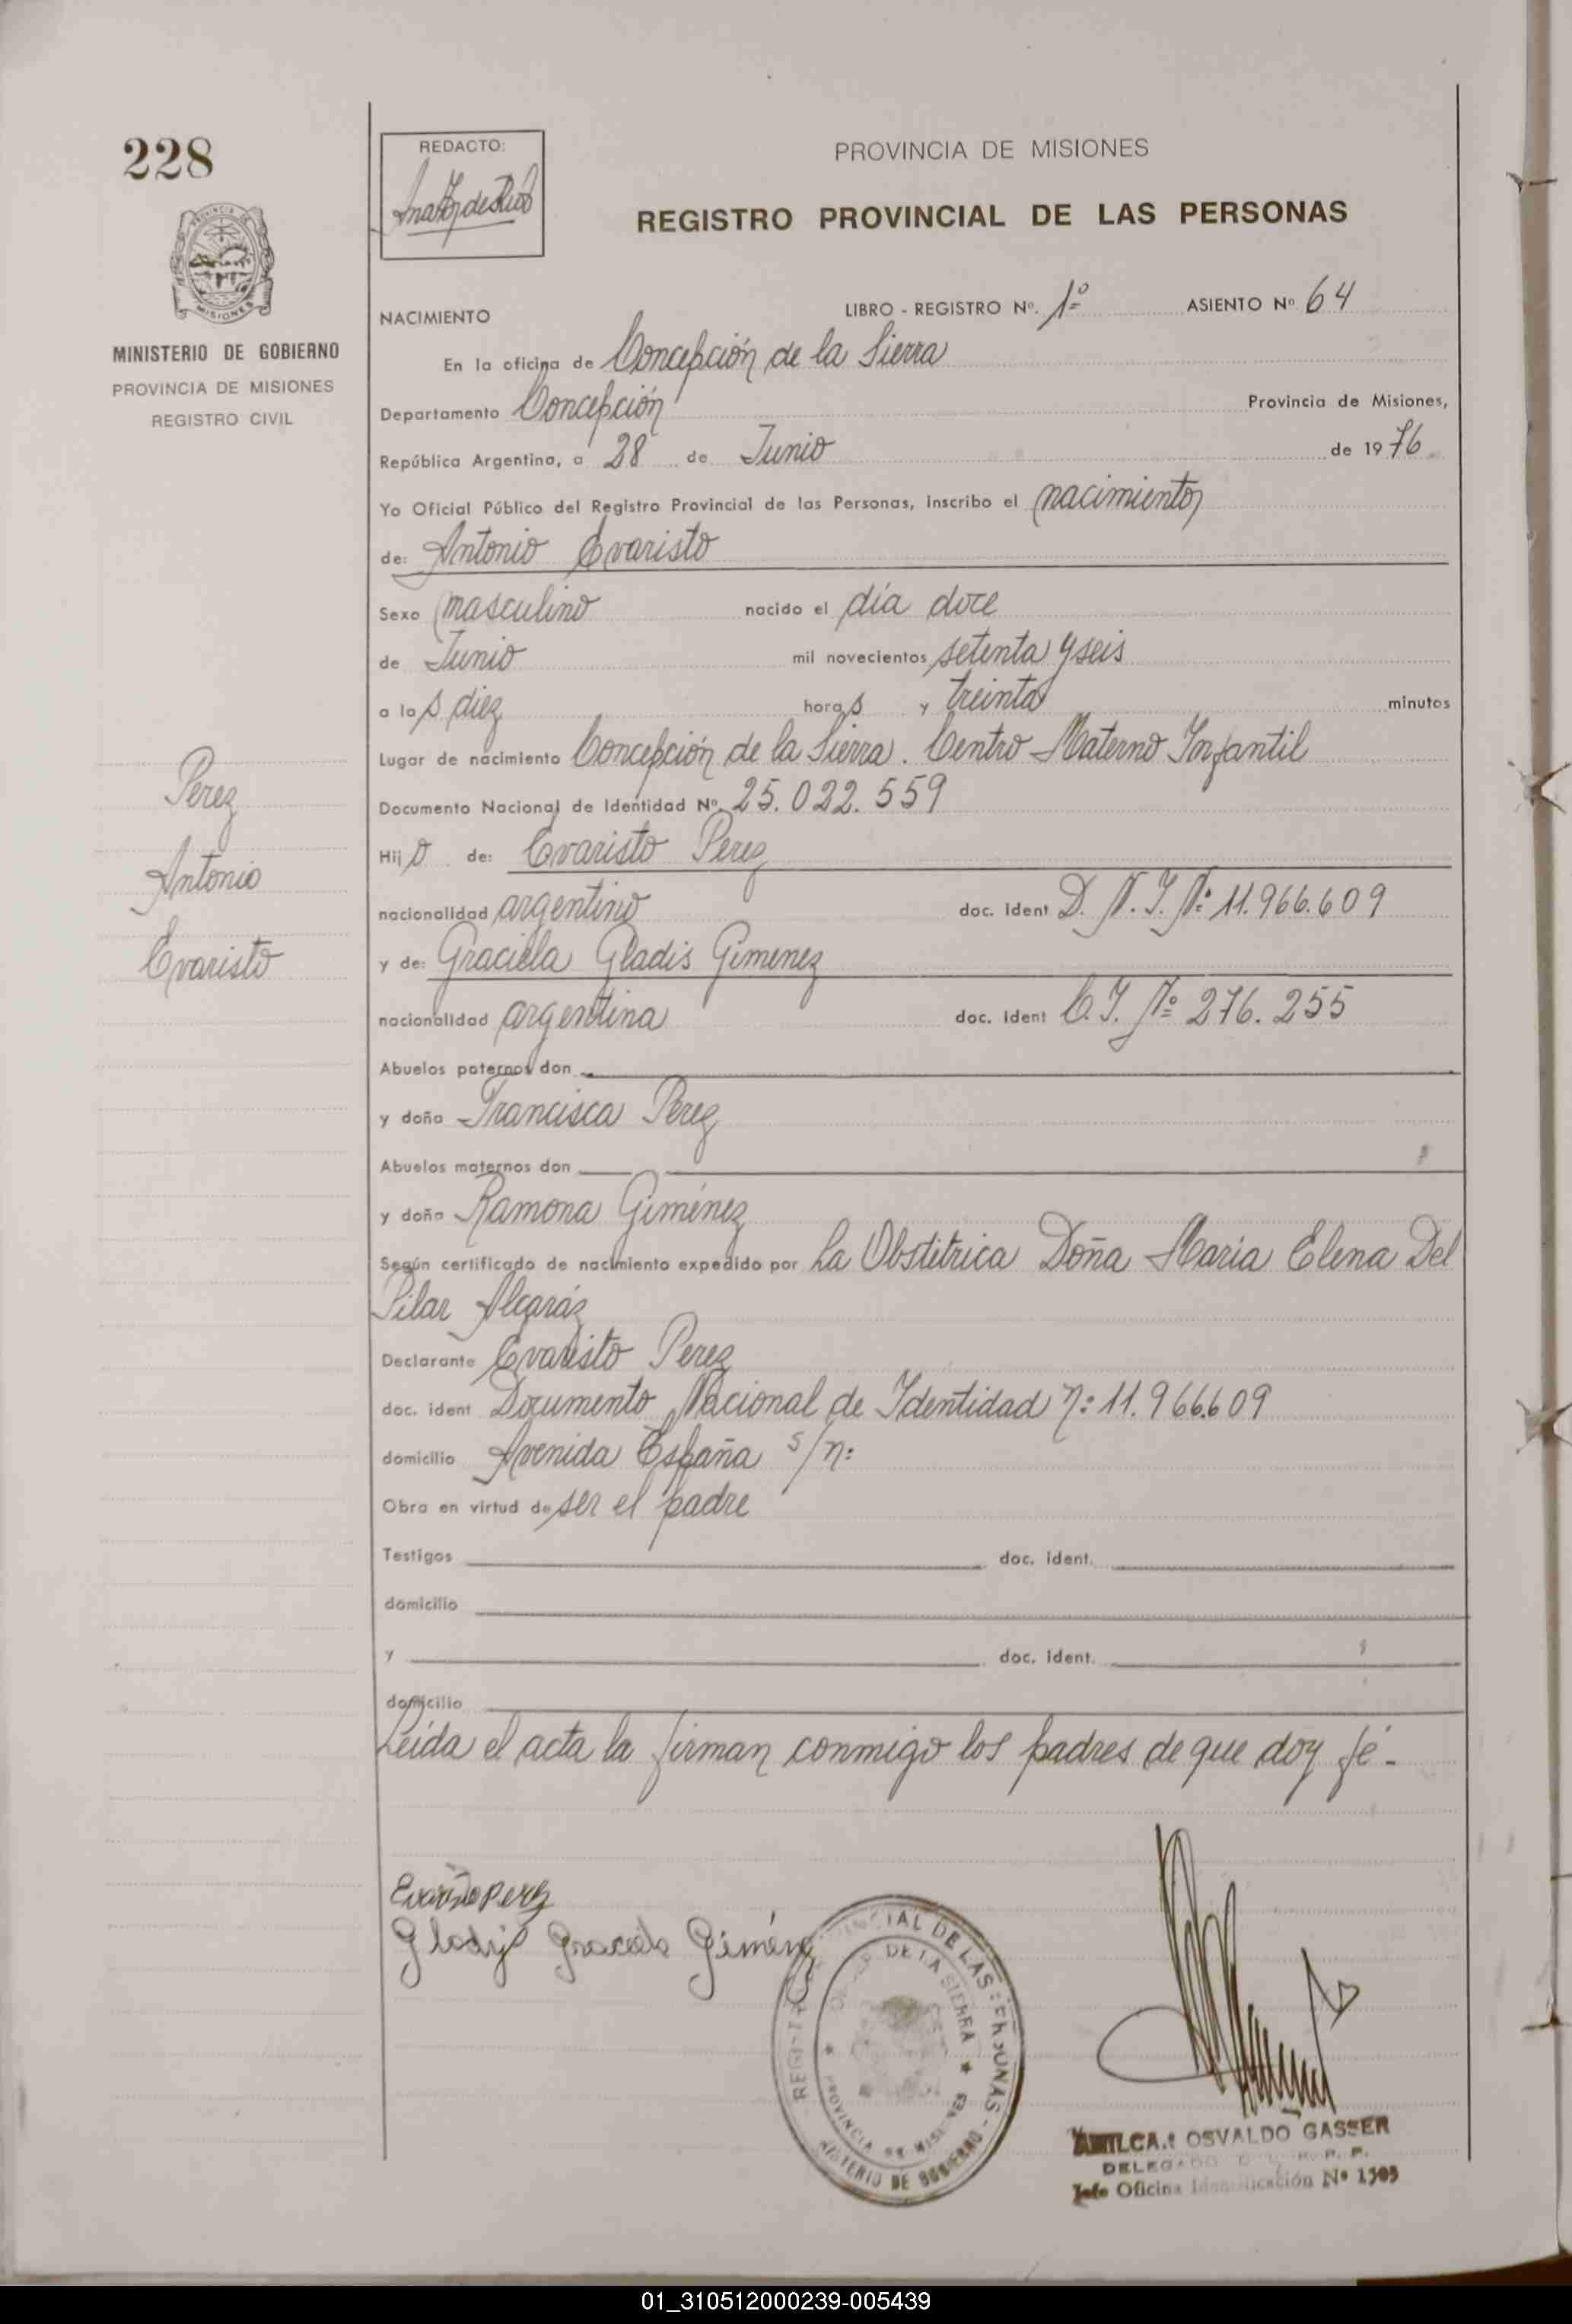 228
REDACTO:
PROVINCIA DE MISIONES
REGISTRO PROVINCIAL DE LAS PERSONAS
MISIONES
MINISTERIO DE GOBIERNO
PROVINCIA DE MISIONES
REGISTRO CIVIL
NACIMIENTO LIBRO - REGISTRO Nº. 1º ASIENTO Nº 64
En la oficina de Concepción de la Sierra
Departamento Concepción Provincia de Misiones,
República Argentina, a 28 de Junio de 1976
Yo Oficial Público del Registro Provincial de las Personas, inscribo el nacimiento
de: Antonio Evaristo
Sexo masculino nacido el día doce
de Junio mil novecientos setenta y seis
a las diez horas y treinta minutos
Lugar de nacimiento Concepción de la Sierra. Centro Materno Infantil
Documento Nacional de Identidad Nº. 25.022.559
Hijo de: Evaristo Perez
nacionalidad argentino doc. ident D. N. I. Nº: 11.966.609
y de: Graciela Gladis Gimenez
nacionalidad argentina doc. ident C. I. Nº 276.255
Abuelos paternos don
y doña Francisca Perez
Abuelos maternos don
y doña Ramona Giménez
Según certificado de nacimiento expedido por La Obstétrica Doña Maria Elena Del
Pilar Alcaráz
Declarante Evaristo Perez
doc. ident Documento Nacional de Identidad n: 11.966.609
domicilio Avenida España s/n:
Obra en virtud de ser el padre
Testigos doc. ident.
domicilio
y doc. ident.
domicilio
Leida el acta la firman conmigo los padres de que doy fé.-
Perez
Antonio
Evaristo
Evaristo Perez
Gladys Graciela Giménez
REGISTRO PROVINCIAL DE LAS PERSONAS - MINISTERIO DE GOBIERNO
DE LA SIERRA
PROVINCIA DE MISIONES
OSVALDO GASSER
DELEGADO
Jefe Oficina Identificación Nº 1505
01_310512000239-005439